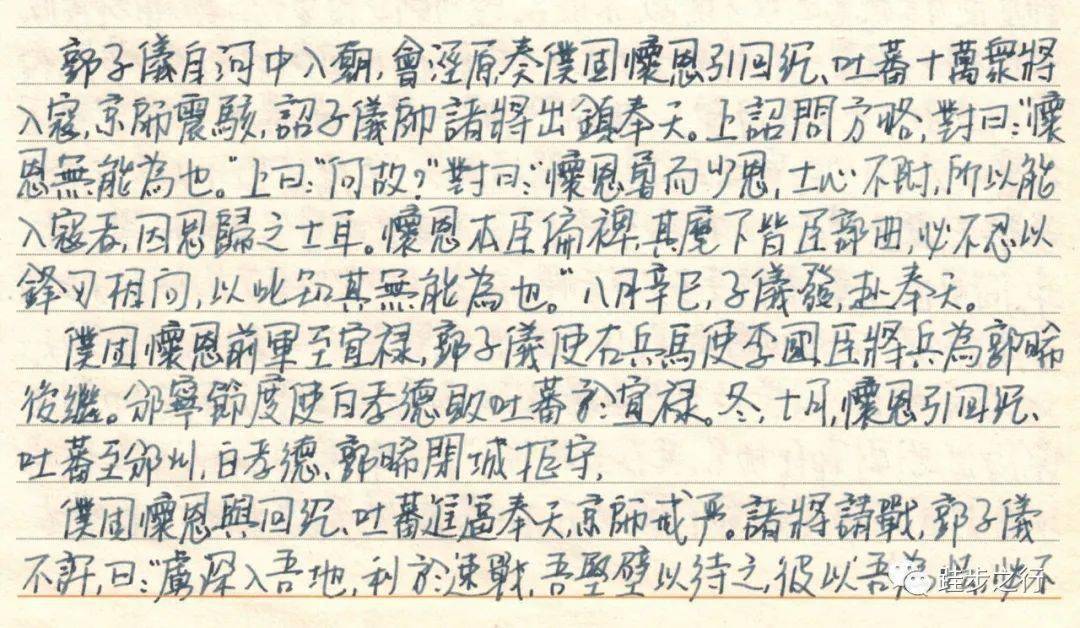 郭子儀自河中入朝,會涇原奏僕固懷恩引回紇、吐蕃十萬衆將
入寇,京師震駭,詔子儀帥諸將出鎮奉天。上詔問方略,對曰:“懷
恩無能為也。”上曰:“何故?”對曰:“懷恩勇而少恩,士心不附,所以能
入寇者,因思歸之士耳。懷恩本臣偏裨,其麾下皆臣部曲,必不忍以
鋒刃相向,以此知其無能為也。”八月辛巳,子儀發,赴奉天。
僕固懷恩前軍至宜禄,郭子儀使右兵馬使李國臣將兵為郭晞
後繼。邠寧節度使白孝德敗吐蕃於宜禄。冬,十月,懷恩引回紇、
吐蕃至邠州,白孝德、郭晞閉城拒守,
僕固懷恩與回紇、吐蕃進逼奉天,京師戒严。諸將請戰,郭子儀
不許,曰:“虜深入吾地,利於速戰,吾堅壁以待之,彼以吾為
跬步之行